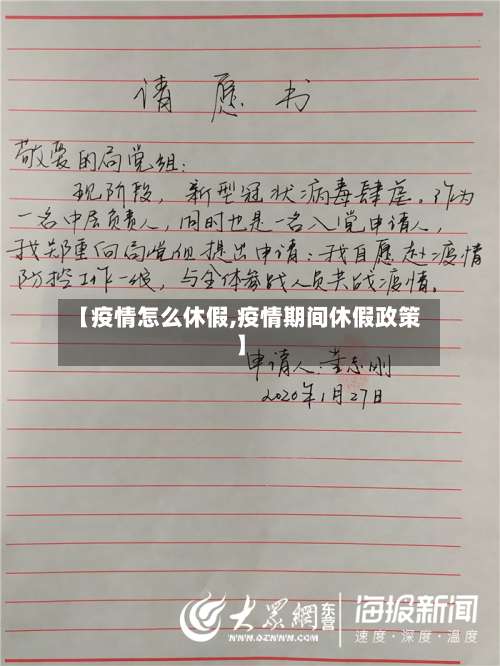 请愿书
敬爱的局党组:
现阶段,新型冠状病毒肆虐。作为
一名中层负责人,同时也是一名入党申请人,
我郑重向局党组提出申请:我自愿赴疫情
防控工作一线,与全体参战人员共战疫情。
【疫情怎么休假,疫情期间休假政策
】
申请人:董志刚
2020年1月27日
大众网 东营 海报新闻
www.dzwww.com 速度·深度·温度